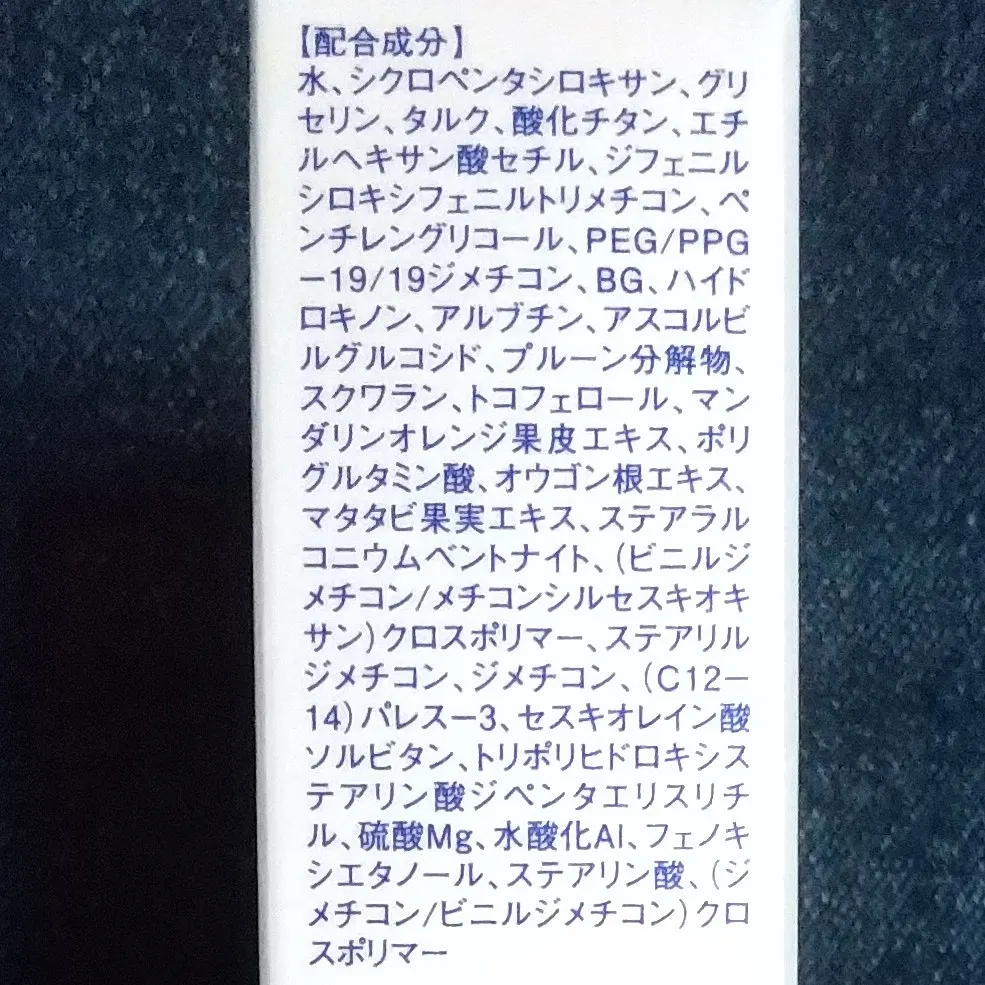 【配合成分】
水、シクロペンタシロキサン、グリ
セリン、タルク、酸化チタン、エチ
ルヘキサン酸セチル、ジフェニル
シロキシフェニルトリメチコン、ペ
ンチレングリコール、PEG/PPG
−19/19ジメチコン、BG、ハイド
ロキノン、アルブチン、アスコルビ
ルグルコシド、プルーン分解物、
スクワラン、トコフェロール、マン
ダリンオレンジ果皮エキス、ポリ
グルタミン酸、オウゴン根エキス、
マタタビ果実エキス、ステアラル
コニウムベントナイト、(ビニルジ
メチコン/メチコンシルセスキオキ
サン)クロスポリマー、ステアリル
ジメチコン、ジメチコン、(C12−
14)パレス−3、セスキオレイン酸
ソルビタン、トリポリヒドロキシス
テアリン酸ジペンタエリスリチ
ル、硫酸Mg、水酸化Al、フェノキ
シエタノール、ステアリン酸、(ジ
メチコン/ビニルジメチコン)クロ
スポリマー